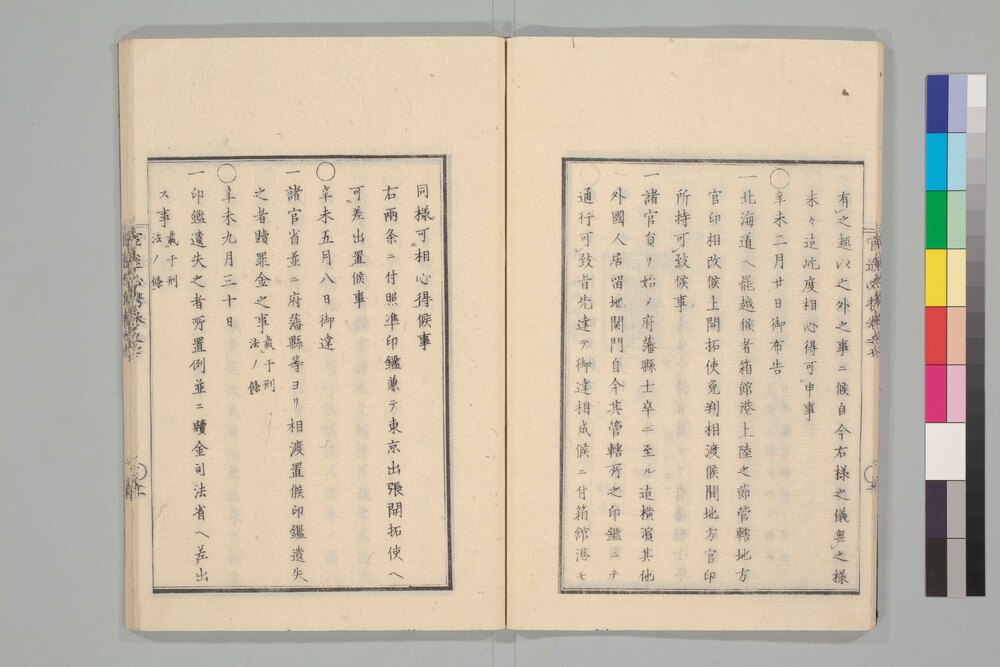 有之趣以之外之事ニ候自今右様之儀無之様
末々迄屹度相心得可申事
○辛未二月廿日御布告
一北海道ヘ罷越候者箱館港上陸之節管轄地方
官印相改候上開拓使免判相渡候間地方官印
所持可致候事
一諸官員ヲ始メ府藩縣士卒ニ至ル迄横濱其他
外國人居留地関門自今其管轄所之印鑑ヲ以テ
通行可致旨先達テ御達相成候ニ付箱館港モ
同様可相心得候事
右兩条ニ付照準印鑑兼テ東京出張開拓使ヘ
可差出置候事
○辛未五月八日御達
一諸官省並ニ府藩縣等ヨリ相渡置候印鑑遺失
之者贖罪金之事
載于刑
法ノ條
○辛未九月三十日
一印鑑遺失之者所置例並ニ贖金司法省ヘ差出
ス事
載于刑
法ノ條